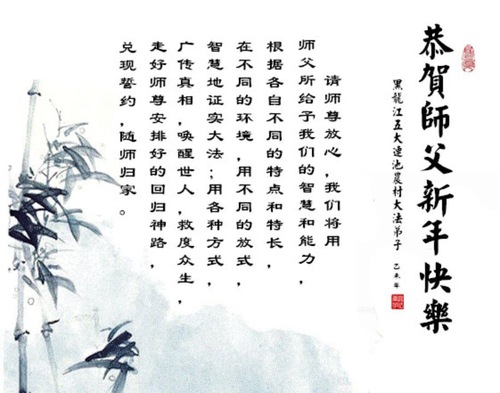 恭賀師父新年快樂
黑龍江五大連池農村大法弟子
乙未年
请师尊放心,我们将用
师父所给予我们的智慧和能力,
根据各自不同的特点和特长,
在不同的环境,用不同的放式,
智慧地证实大法;用各种方式,
广传真相,唤醒世人,救度众生,
走好师尊安排好的回归神路,
兑现誓约,随师归家。